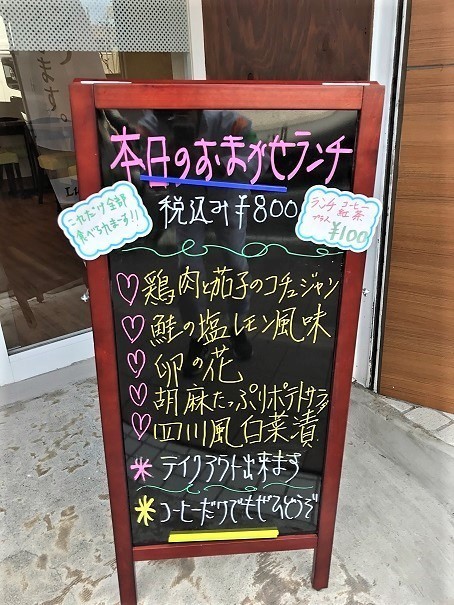 本日のおまかせランチ
税込み¥800
これだけ全部
食べられます!!
ランチ コーヒー
プラス 紅茶
¥100
♡鶏肉と茄子のコチュジャン
♡鮭の塩レモン風味
♡卯の花
♡胡麻たっぷりポテトサラダ
♡四川風白菜漬
*テイクアウト出来ます
*コーヒーだけでもぜひどうぞ